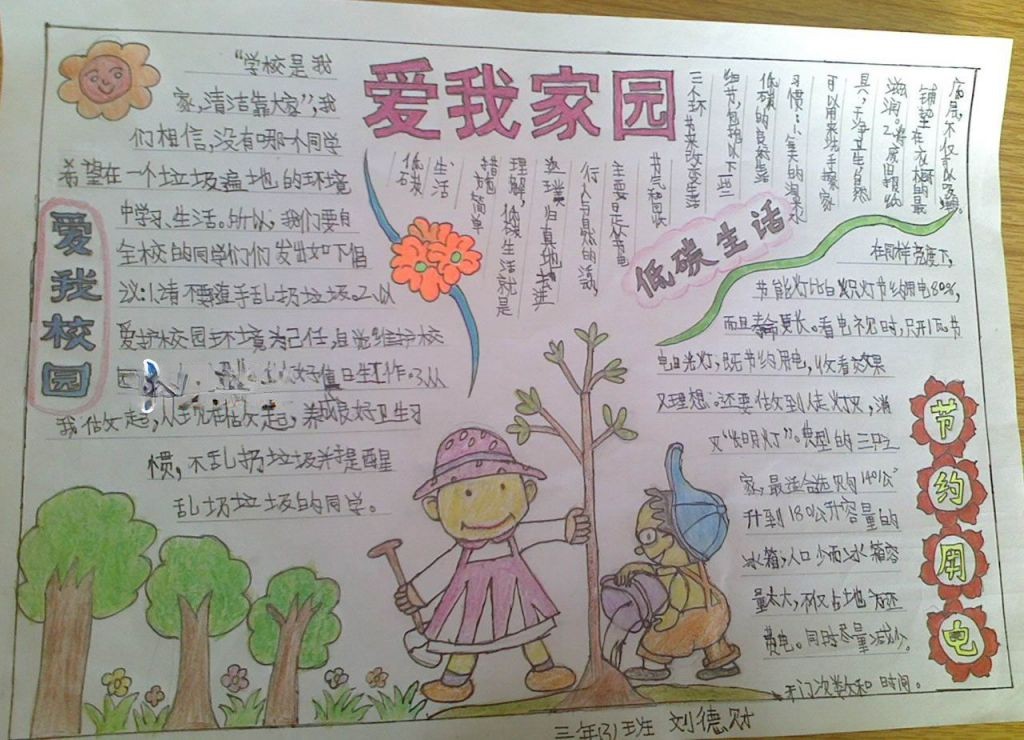 爱我家园
爱我校园
“学校是我
家,清洁靠大家”,我
们相信,没有哪个同学
希望在一个垃圾遍地的环境
中学习、生活。所以,我们要自
全校的同学们们发出如下倡
议:1.请不要随手乱扔垃圾。2.以
爱护校园环境为己任,自觉维护校
园 好值日生工作。3.从
我做起,从现在做起,养成良好卫生习
惯,不乱扔垃圾并提醒
乱扔垃圾的同学。
低碳生活
低碳
生活
措方简单
理解,低碳生活就是
返璞归真地去进
行人与自然的活动,
主要是从节电
节气和回收
三个环节来改变生活
细节,包括以下一些
低碳的良好
习惯:1.淘米水
可以用来洗手擦家
具,干净卫生自然
滋润。2.将废旧报纸
铺垫在衣橱的最
底层,不仅可以吸潮
节约用电
在同样亮度下,
节能灯比白炽灯节约用电80%,
而且寿命更长。看电视时,只开1瓦节
电日光灯,既节约用电,收看效果
又理想;还要做到人走灯灭,消
灭“长明灯”。典型的三口之
家,最适合选购140公
升到180公升容量的
冰箱;人口少而冰箱容
量太大,不仅占地方还
费电。同时尽量减少
开门次数和时间。
三年(3)班 刘德财